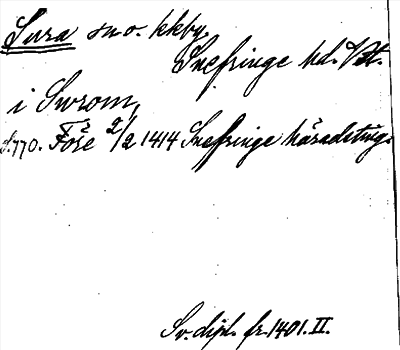 Sura sn o. kkby.
Snefringe hd. Vstm.
i Swrom,
s. 770. Före 2/2 1414 Snefringe häradsting.
Sv. dipl. fr. 1401. II.